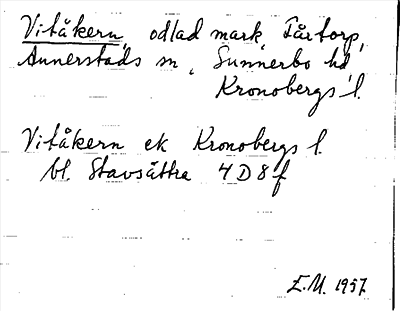 Vitåkern, odlad mark, Fårtorp,
Annerstads sn, Sunnerbo hd,
Kronobergs l.
Vitåkern ek Kronobergs l.
bl. Stavsättra 4D8f
E.M. 1957